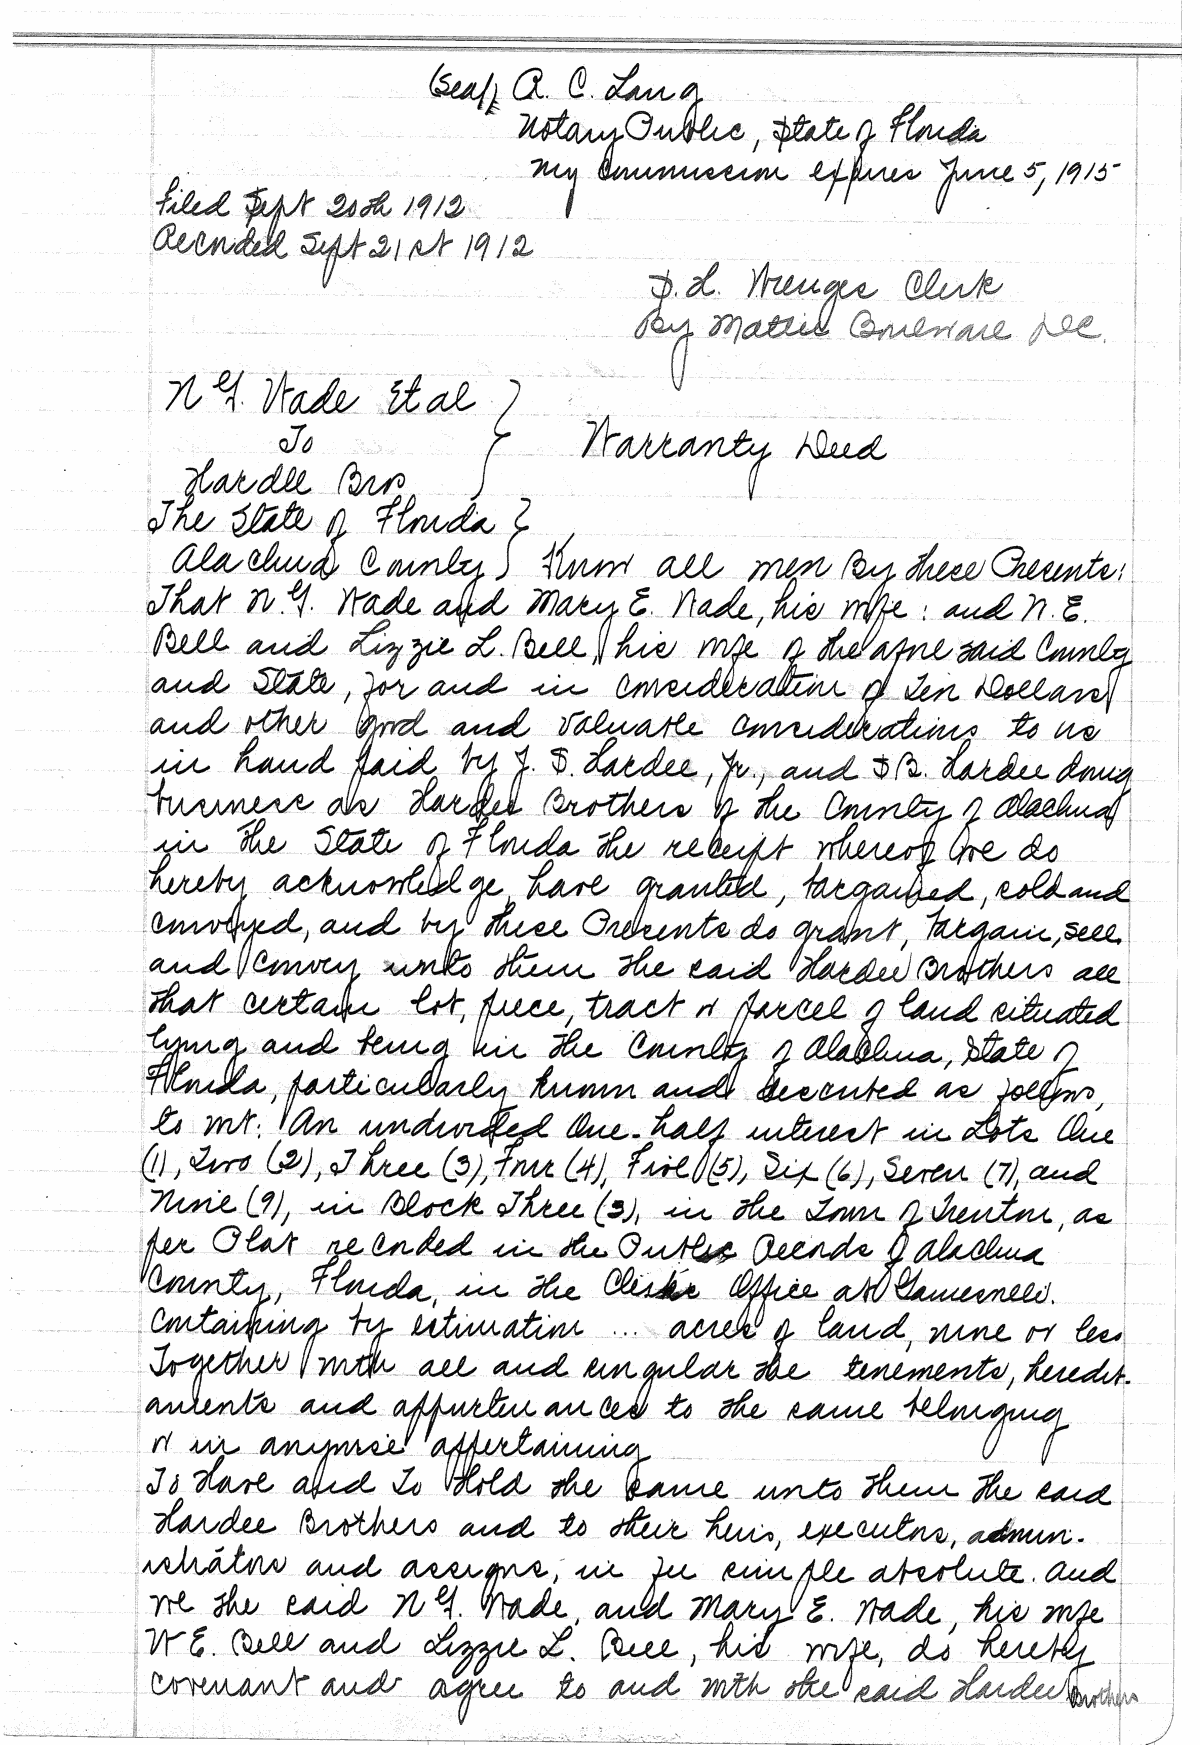 (Seal) A. C. Lang
Notary Public, State of Florida
My Commission expires June 5, 1915
Filed Sept 20th 1912
Recorded Sept 21st 1912
S. H. Wienges Clerk
By Mattie Boulware D.C.
N G. Wade Et al
To
Hardee Bros
Warranty Deed
The State of Florida
Alachua County Know all men By these Presents:
That N. G. Wade and Mary E. Wade, his wife: and W. E.
Bell and Lizzie L. Bell, his wife of the afore said County
and State, for and in consideration of Ten Dollars
and other good and valuable considerations to us
in hand paid by J. S. Hardee, Jr., and S B. Hardee doing
business as Hardee Brothers of the County of Alachua
in the State of Florida the receipt whereof we do
hereby acknowledge, have granted, bargained, sold and
conveyed, and by these Presents do grant, bargain, sell
and Convey unto them the said Hardee Brothers all
that certain lot, piece, tract or parcel of land situated
lying and being in the County of Alachua, State of
Florida, particularly known and described as follows,
to wit: An undivided One-half interest in Lots One
(1), Two (2), Three (3), Four (4), Five (5), Six (6), Seven (7), and
Nine (9), in Block Three (3), in the Town of Trenton, as
per Plat recorded in the Public Records of Alachua
County, Florida, in the Clerks Office at Gainesville.
Containing by estimation ... acres of land, more or less
Together with all and singular the tenements, heredit-
aments and appurtenances to the same belonging
or in anywise appertaining
To Have and To Hold the same unto them the said
Hardee Brothers and to their heirs, executors, admin-
istrators and assigns, in fee simple absolute. And
we the said N G. Wade, and Mary E. Wade, his wife
W E. Bell and Lizzie L. Bell, his wife, do hereby
covenant and agree to and with the said Hardee Brothers